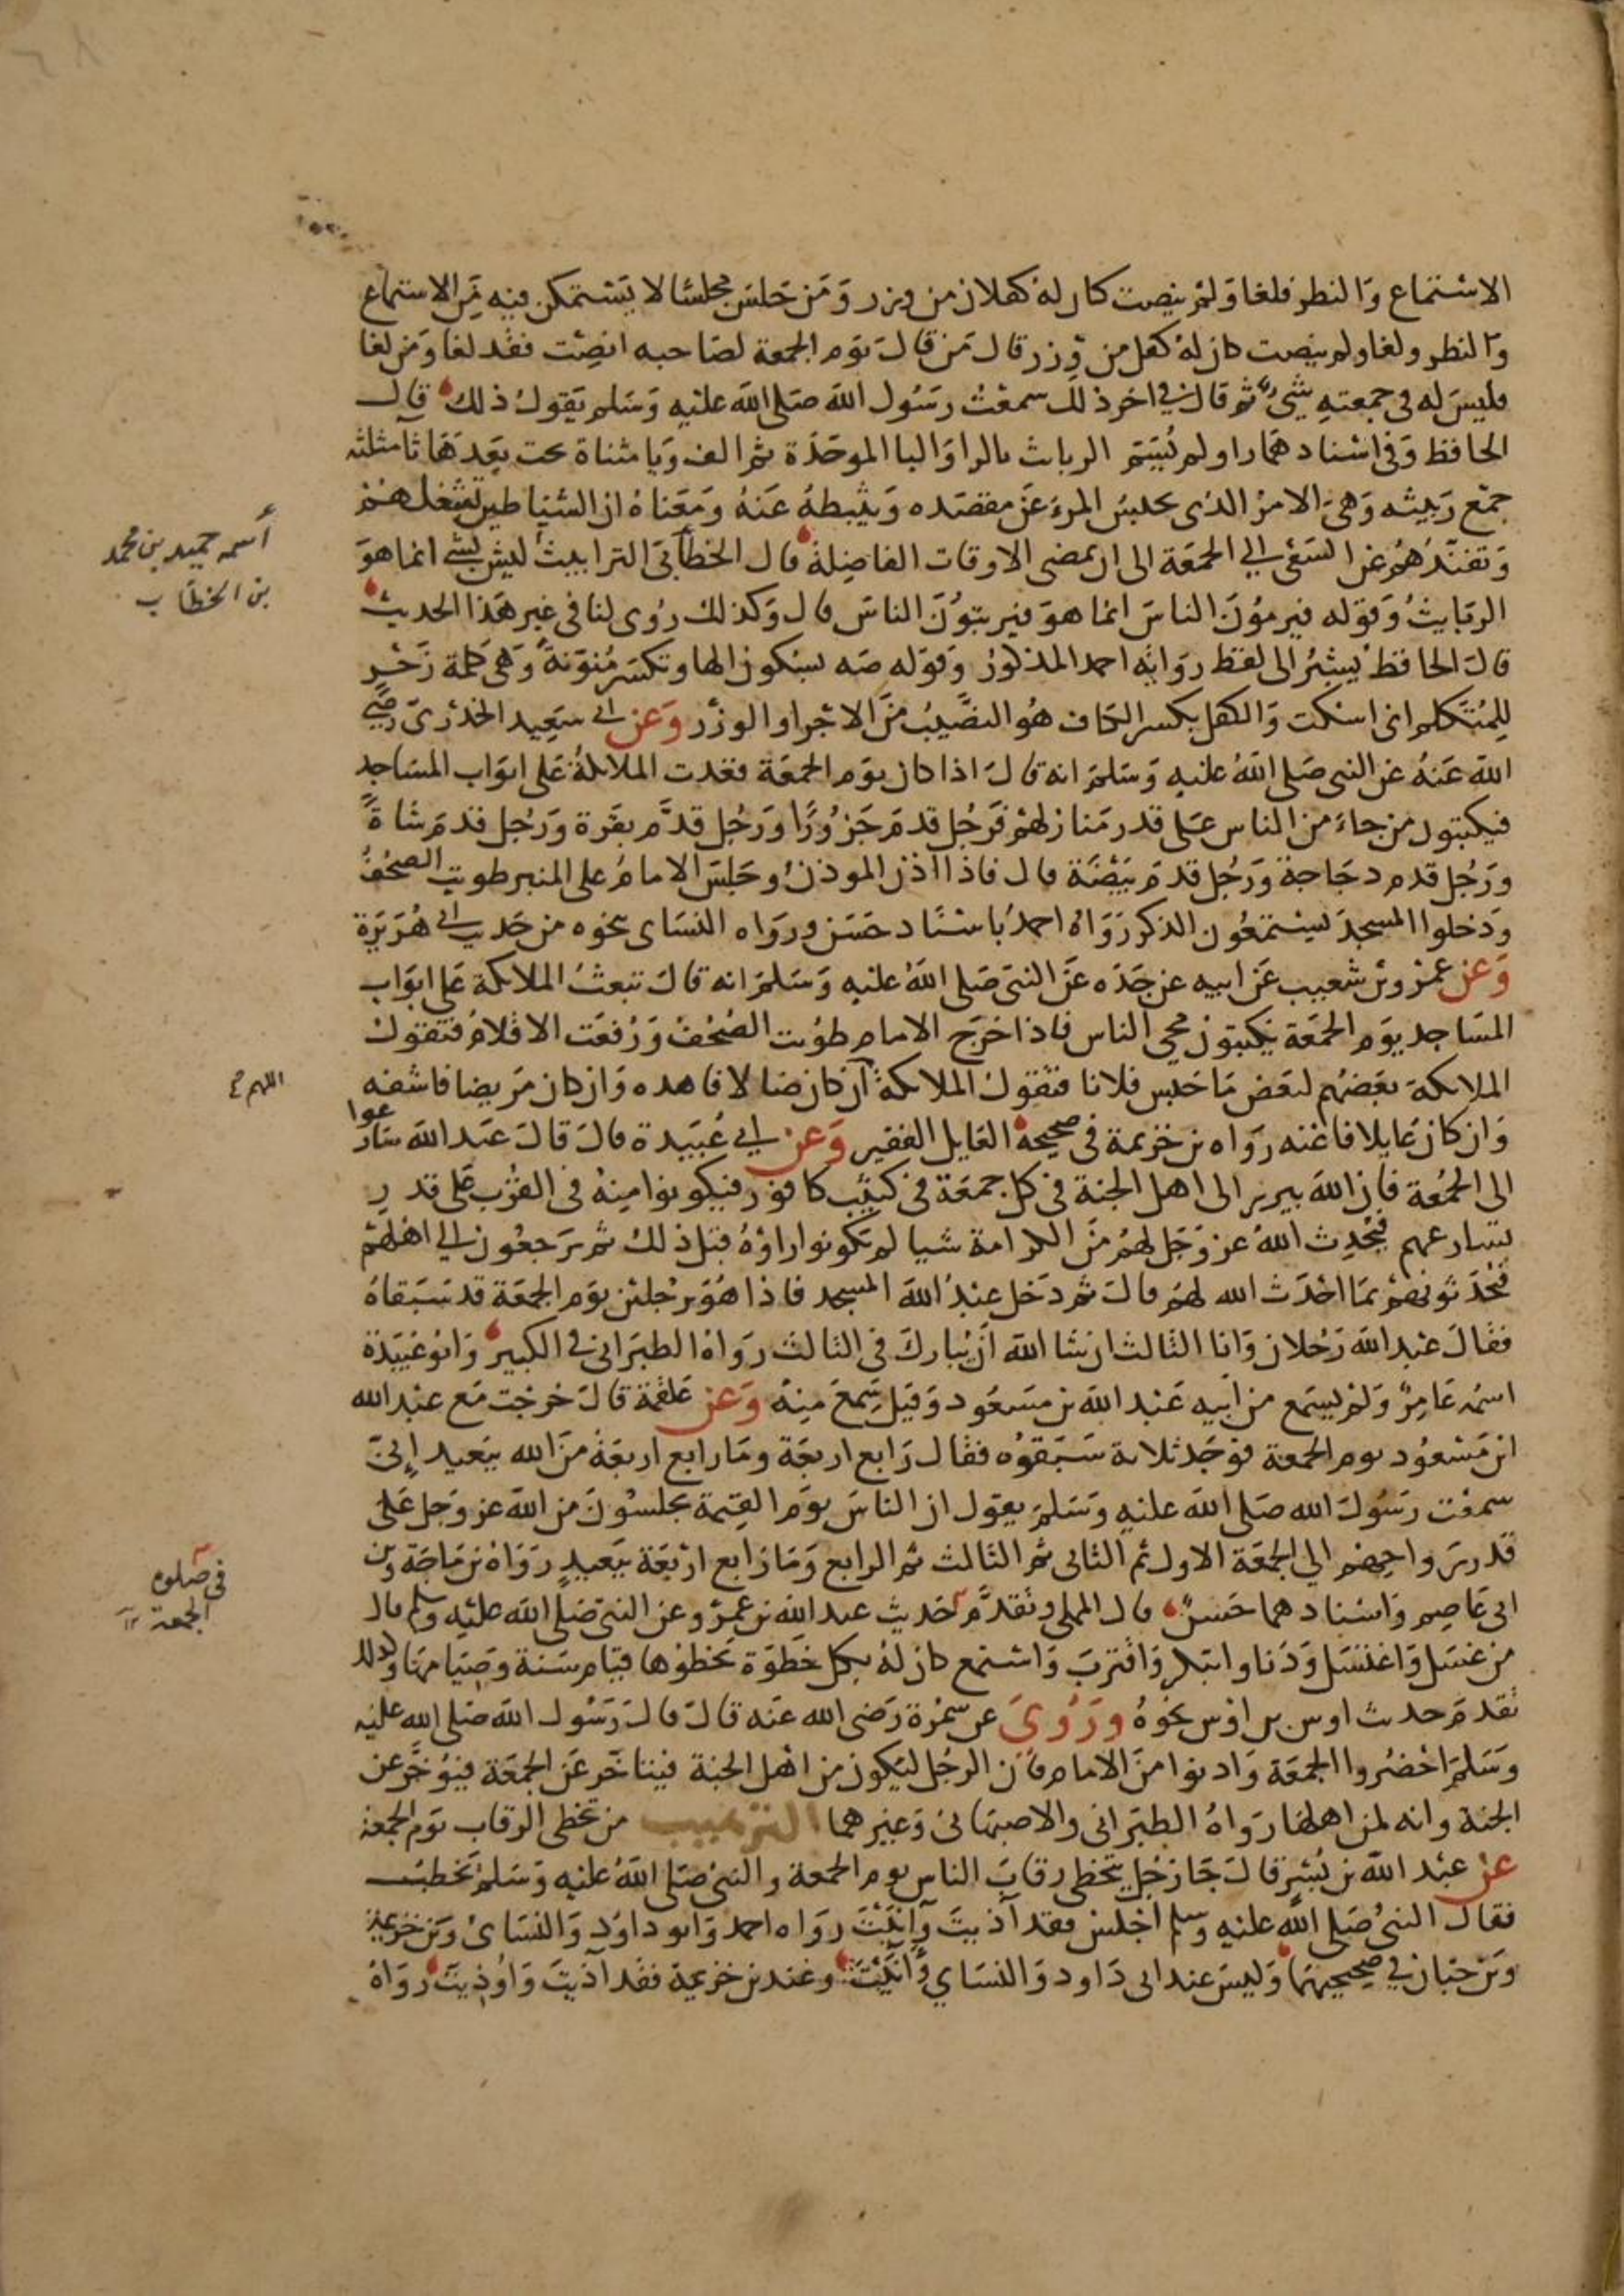 الاستماع والنظر فلغا ولم ينصت كان له كفلان من وزر ومن جلس مجلسا لا يستمكن فيه من الاستماع
والنظر ولغا ولم ينصت كان له كفل من وزر قال من قال يوم الجمعة لصاحبه انصت فقد لغا ومن لغا
فليس له في جمعته شيء ثم قال في اخر ذلك سمعت رسول الله صلى الله عليه وسلم يقول ذلك قال
الحافظ وفي اسنادهما راو لم يسم الرباث بالراء والبا الموحدة ثم الف ويا مثناة تحت بعدها ثا مثلثه
جمع ربيثه وهي الامر الذي يحبس المرء عن مقصده ويثبطه عنه ومعناه ان الشياطين تشغلهم
وتفندهم عن السعي الى الجمعة الى ان تمضي الاوقات الفاضلة قال الخطابي الترابيث ليس بشي انما هو
الربايث وقوله فيرمون الناس انما هو فيربثون الناس قال وكذلك روى لنا في غير هذا الحديث
قال الحافظ يشير الى لفظ رواية احمد المذكور وقوله صه بسكون الها وتكسر منونة وهي كلمة زجر
للمتكلم اي اسكت والكفل بكسر الكاف هو النصيب من الاجر او الوزر وعن ابي سعيد الخدري رضي
الله عنه عن النبي صلى الله عليه وسلم انه قال اذا كان يوم الجمعة قعدت الملائكة على ابواب المساجد
فيكتبون من جاء من الناس على قدر منازلهم فرجل قدم جزورا ورجل قدم بقرة ورجل قدم شاة
ورجل قدم دجاجة ورجل قدم بيضة قال فاذا اذن الموذن وجلس الامام على المنبر طويت الصحف
ودخلوا المسجد يستمعون الذكر رواه احمد باسناد حسن ورواه النساي بنحوه من حديث ابي هريرة
وعن عمرو بن شعيب عن ابيه عن جده عن النبي صلى الله عليه وسلم انه قال تبعث الملائكة على ابواب
المساجد يوم الجمعة يكتبون مجي الناس فاذا خرج الامام طويت الصحف ورفعت الاقلام فتقول
الملائكة بعضهم لبعض ما حبس فلانا فتقول الملائكة ان كان ضالا فاهده وان كان مريضا فاشفه
وان كان عايلا فاغنه رواه بن خزيمة في صحيحه العايل الفقير وعن ابي عبيدة قال قال عبد الله سارعوا
الى الجمعة فان الله يبرز الى اهل الجنة في كل جمعة في كثيب كافور فيكونوا منه في القرب على قدر
تسارعهم فيحدث الله عز وجل لهم من الكرامة شيا لم يكونوا راوه قبل ذلك ثم يرجعون الى اهلهم
فيحدثونهم بما احدث الله لهم قال ثم دخل عبد الله المسجد فاذا هو برجلين يوم الجمعة قد سبقاه
فقال عبد الله رجلان وانا الثالث ان شا الله ان يبارك في الثالث رواه الطبراني في الكبير وابو عبيدة
اسمه عامر ولم يسمع من ابيه عبد الله بن مسعود وقيل سمع منه وعن علقمة قال خرجت مع عبد الله
ابن مسعود يوم الجمعة فوجد ثلاثة سبقوه فقال رابع اربعة وما رابع اربعة من الله ببعيد اني
سمعت رسول الله صلى الله عليه وسلم يقول ان الناس يوم القيمة يجلسون من الله عز وجل على
قدر رواحهم الى الجمعة الاول ثم الثاني ثم الثالث ثم الرابع وما رابع اربعة ببعيد رواه بن ماجة وبن
ابي عاصم واسنادهما حسن قال المملي وتقدم حديث عبد الله بن عمرو عن النبي صلى الله عليه وسلم قال
من غسل واغتسل ودنا وابتكر واقترب واستمع كان له بكل خطوة يخطوها قيام سنة وصيامها وكذلك
تقدم حديث اوس بن اوس بنحوه وروي عن سمرة رضي الله عنه قال قال رسول الله صلى الله عليه
وسلم احضروا الجمعة وادنوا من الامام فان الرجل ليكون من اهل الجنة فيتاخر عن الجمعة فيوخر عن
الجنة وانه لمن اهلها رواه الطبراني والاصبهاني وغيرهما الترهيب من تخطي الرقاب يوم الجمعة
عن عبد الله بن بسر قال جا رجل يتخطى رقاب الناس يوم الجمعة والنبي صلى الله عليه وسلم يخطب
فقال النبي صلى الله عليه وسلم اجلس فقد آذيت وآنيت رواه احمد وابو داود والنساي وبن خزيمة
وبن حبان في صحيحيهما وليس عند ابي داود والنساي وآنيت وعند بن خزيمة فقد آذيت واوذيت رواه
أسمه حميد بن محمد
بن الخطاب
اللهم
في صلوة
الجمعة ١٢